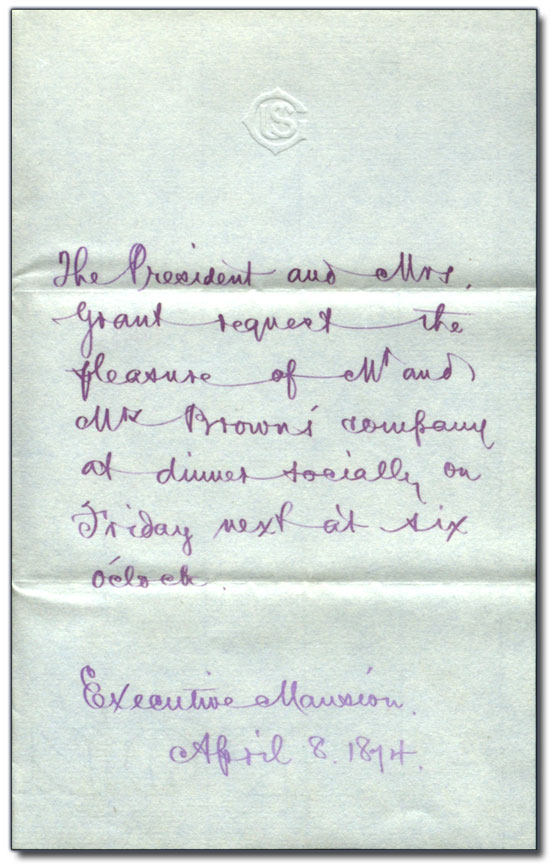 USG
The President and Mrs.
Grant request the
pleasure of Mr and
Mrs Brown's company
at dinner socially on
Friday next at six
o'clock.
Executive Mansion.
April 8. 1874.